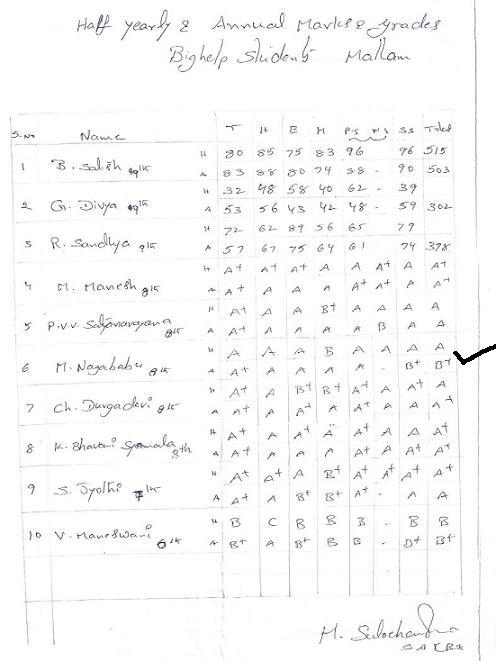 Half yearly & Annual Marks & grades
Bighelp Students Mallam
S.No Name T H E M P.S N.S SS Total
H 80 85 75 83 96 96 515
1 B. Satish 9th A 83 88 80 74 88 - 90 503
H 32 48 58 40 62 - 39
2 G. Divya 9th A 53 56 43 42 48 - 59 302
H 72 62 89 56 65 79
3 R. Sandhya 9th A 57 67 75 64 61 74 398
H A+ A+ A+ A A A+ A A
4 M. Manesh 8th A A+ A A A A+ A+ A A+
H A+ A B+ A A A A
5 P.V.V. Satyanarayana 8th A A+ A A A A B A A
H A A A B A A A A
6 M. Nagababu 8th A A+ A A A A - B+ B+
H A+ A B+ B+ A A A+ A
7 Ch. Durgadevi 8th A A+ A A+ A A+ A A A+
H A+ A A+ A A+ A A A+
8 K. Bhavani Syamala 8th A A+ A A A A+ A+ A+ A+
H A+ A+ A B+ A+ A A+ A+
9 S. Jyothi 7th A A+ A B+ B+ A+ - A A
H B C B B B B B
10 V. Maneswari 6th A B+ A B+ B B - B+ B+
M. Sulochandra